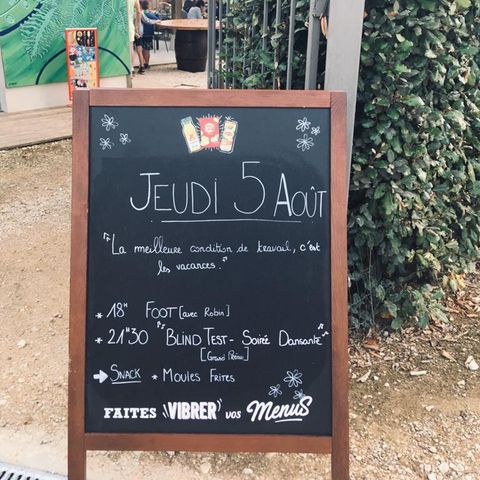 JEUDI 5 AOÛT
"La meilleure condition de travail, c'est
les vacances."
* 18H FOOT [avec Robin]
* 21H30 "BLIND TEST - SOIRÉ DANSANTE"
[GRAND PRÉAU]
→ SNACK * MOULES FRITES
FAITES VIBRER VOS MENUS